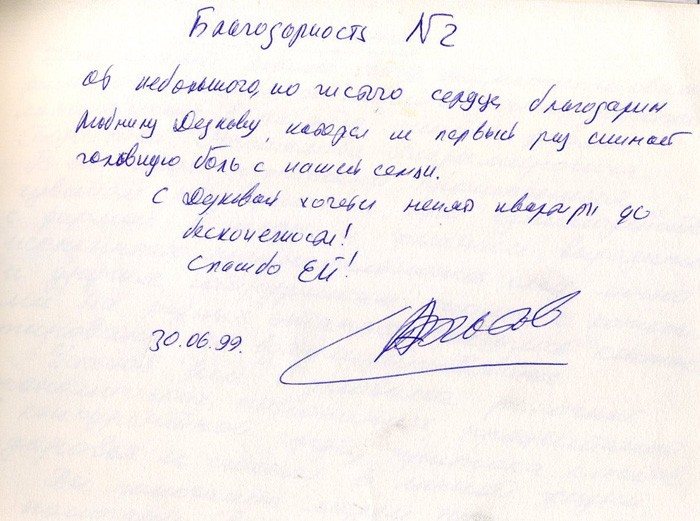 Благодарность №2
От небольшого, но чистого сердца благодарим
Дедкову, которая не первый раз снимает
головную боль с нашей семьи.
С Дедковой хочется менять квартиры до
бесконечности!
Спасибо ЕЙ!
30.06.99.